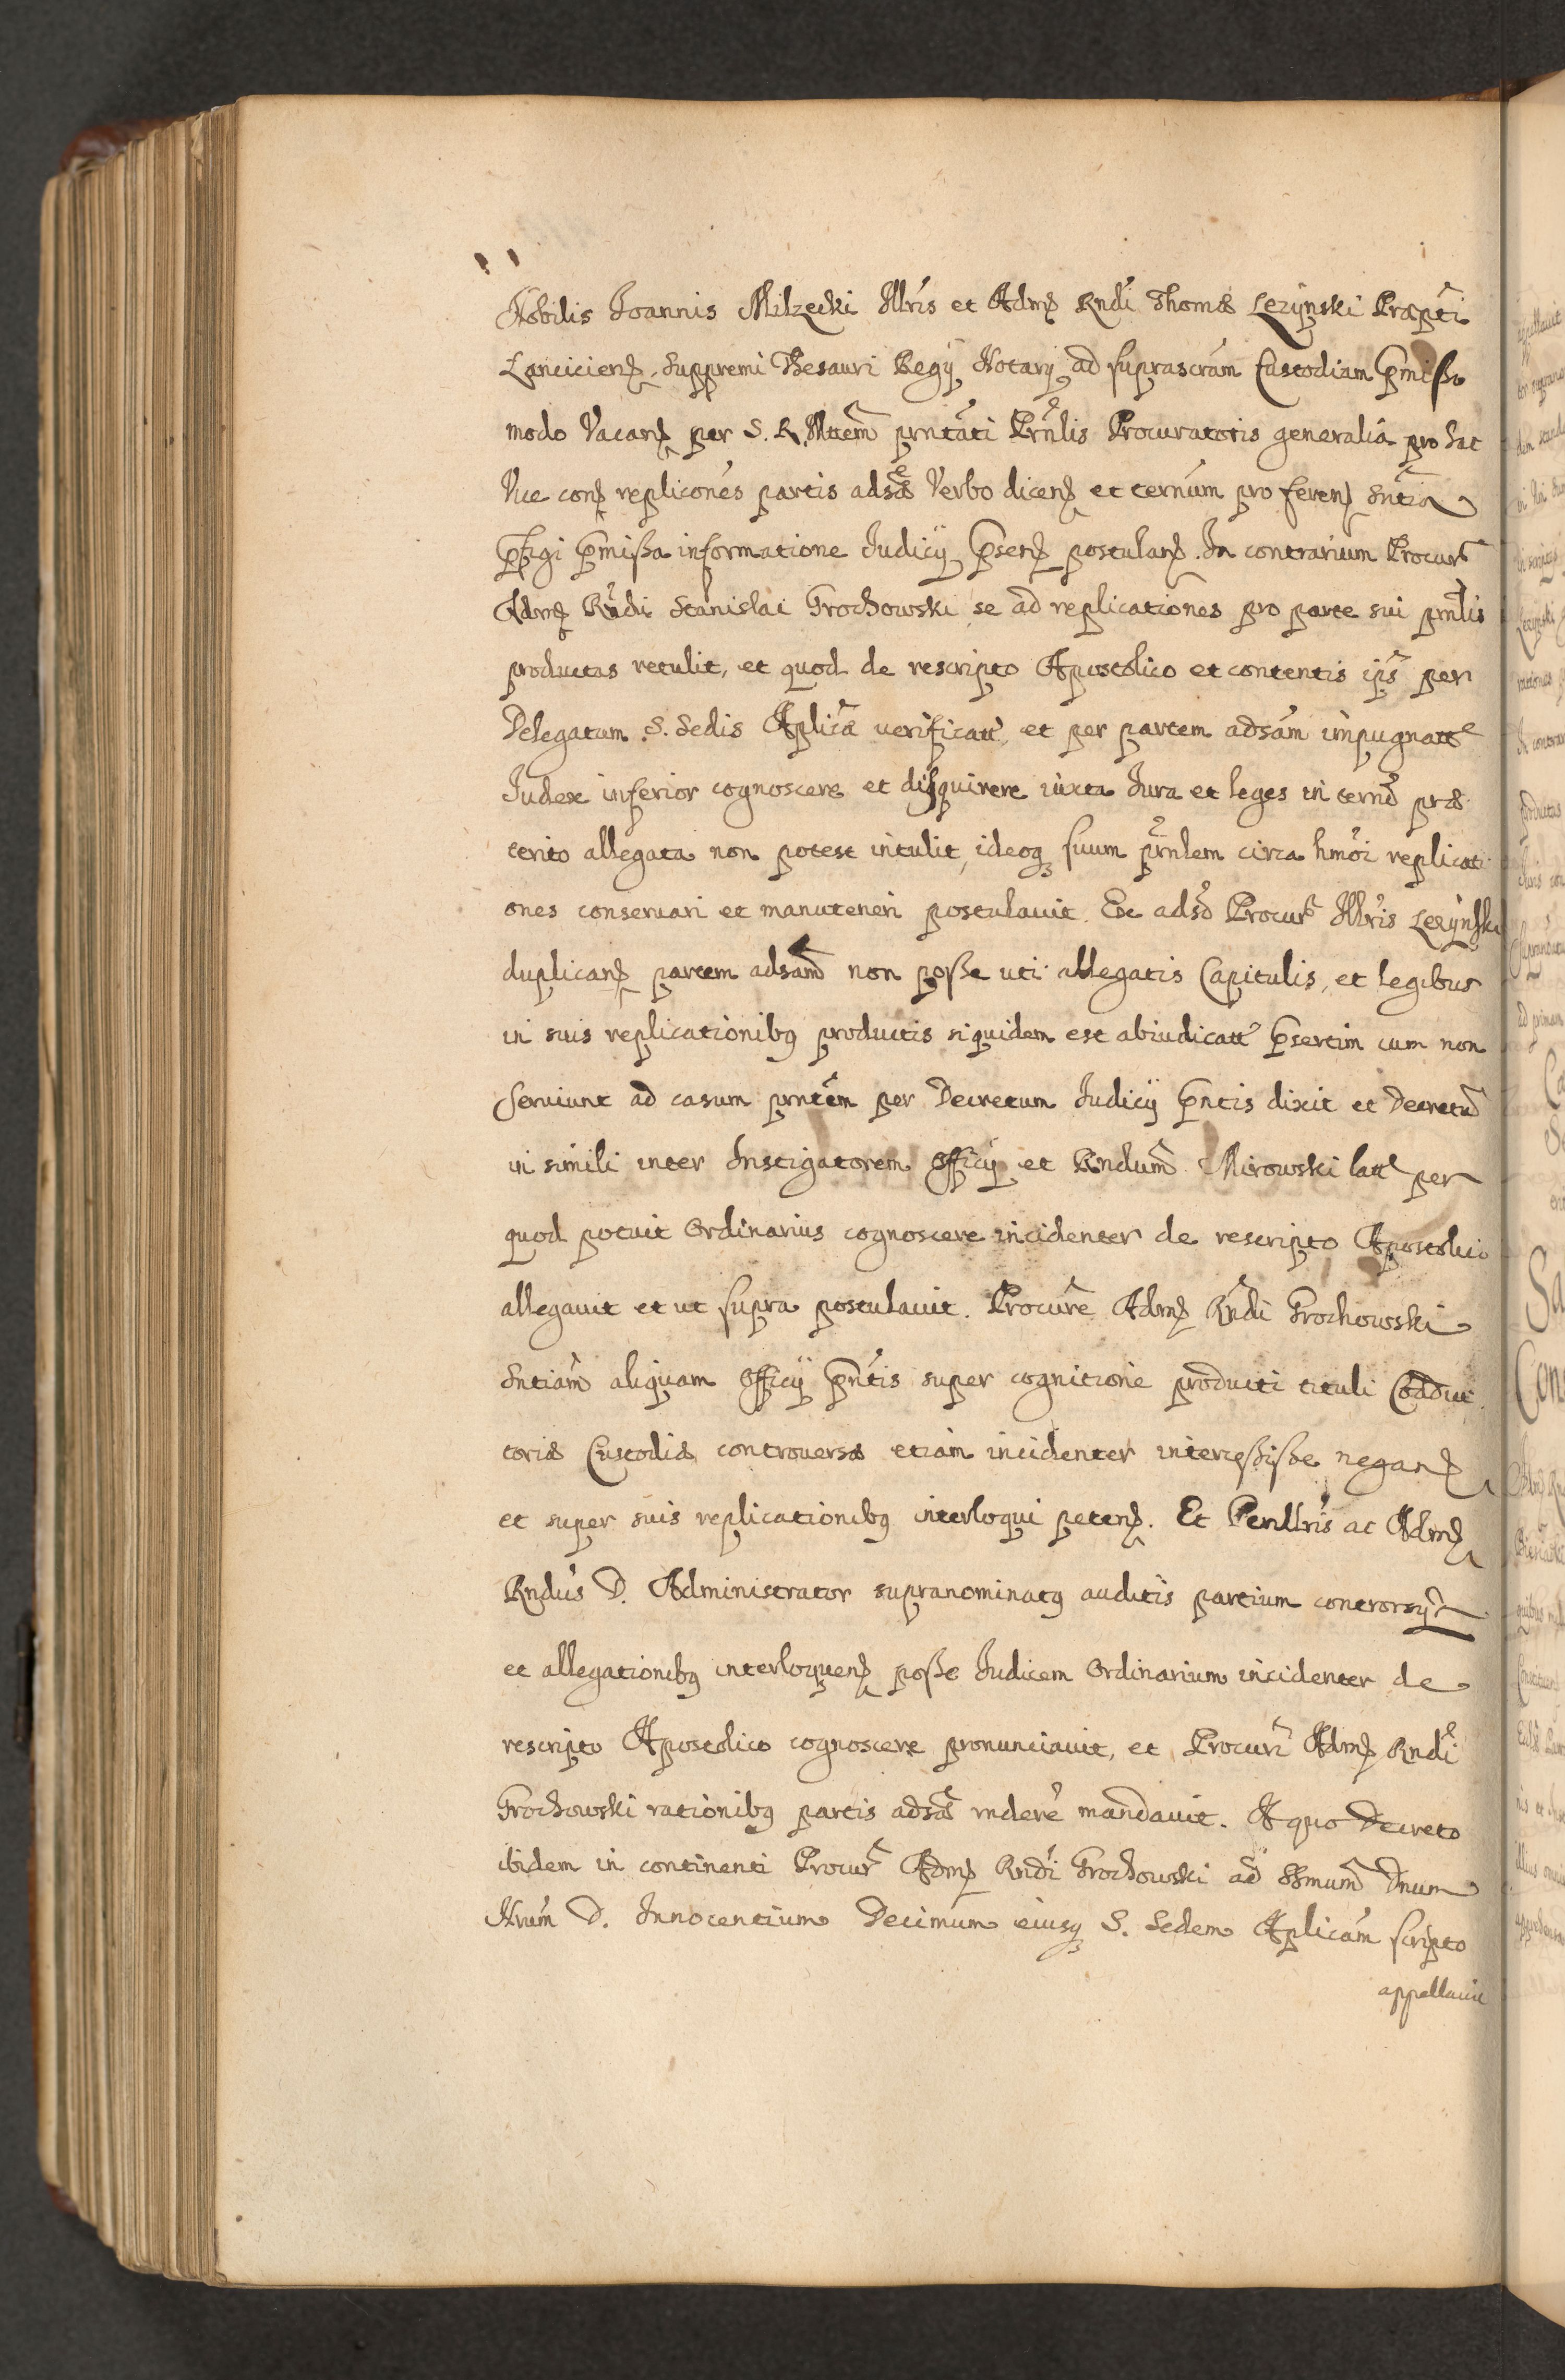 Nobilis Joannis Milzecki Illris et Admȩ Rndi Thomæ Lezynski Præpti
Lanciciens, Suppremi Thesauri Regÿ Notarÿ ad suprascram Custodiam pmisso
modo Vacanȩ per S. R. Mttem prntati Prnlis Procuratoris generalia pro hac
Vice conȩ replicones partis adsæ Verbo dicenȩ et ternum pro ferenȩ Sntia
pfigi pmissa informatione Judicÿ psenȩ postulanȩ. In contrarium Procur
Admȩ Rndi Stanislai Grochowski se ad replicationes pro parte sui prnlis
productas retulit, et quod de rescripto Apostolico et contentis ips per
Delegatum S. Sedis Aplicæ verificatt et per partem adsam impugnatt
Judex inferior cognoscere et disquirere iuxta Jura et leges in terno præ
terito allegata non potest intulit, ideoq suum prnlem circa hmoi replicati
ones conseruari et manuteneri postulauit. Ex adso Procur Illris Lezynski
duplicanȩ partem adsam non posse uti allegatis Capitulis, et legibus
in suis replicationibq productis siquidem est abiudicatt psertim cum non
seruiunt ad casum prntem per Decretum Judicÿ pntis dixit et Decretu
in simili inter Instigatorem Officÿ et Rndum Mirowski latt per
quod potuit Ordinarius cognoscere incidenter de rescripto Apostolico
allegauit et ut supra postulauit. Procure Admȩ Rndi Grochowski
Sntiam aliquam Officÿ pntis super cognitione producti tituli Coadiu
toriæ Custodiæ controuersæ etiam incidenter intercessisse neganȩ
et super suis replicationibq interloqui petenȩ. Et Perillris ac Admȩ
Rndus D. Administrator supranominatq auditis partium controrsÿs
et allegationibq interloquenȩ posse Judicem Ordinarium incidenter de
rescripto Apostolico cognoscere pronunciauit, et Procuri Admȩ Rndi
Grochowski rationibq partis adsæ rndere mandauit. A quo Decreto
ibidem in continenti Procur Admȩ Rndi Grochowski ad SSmum Dnum
Nrum D. Innocentium Decimum eiusq S. Sedem Aplicam scripto
appellauit